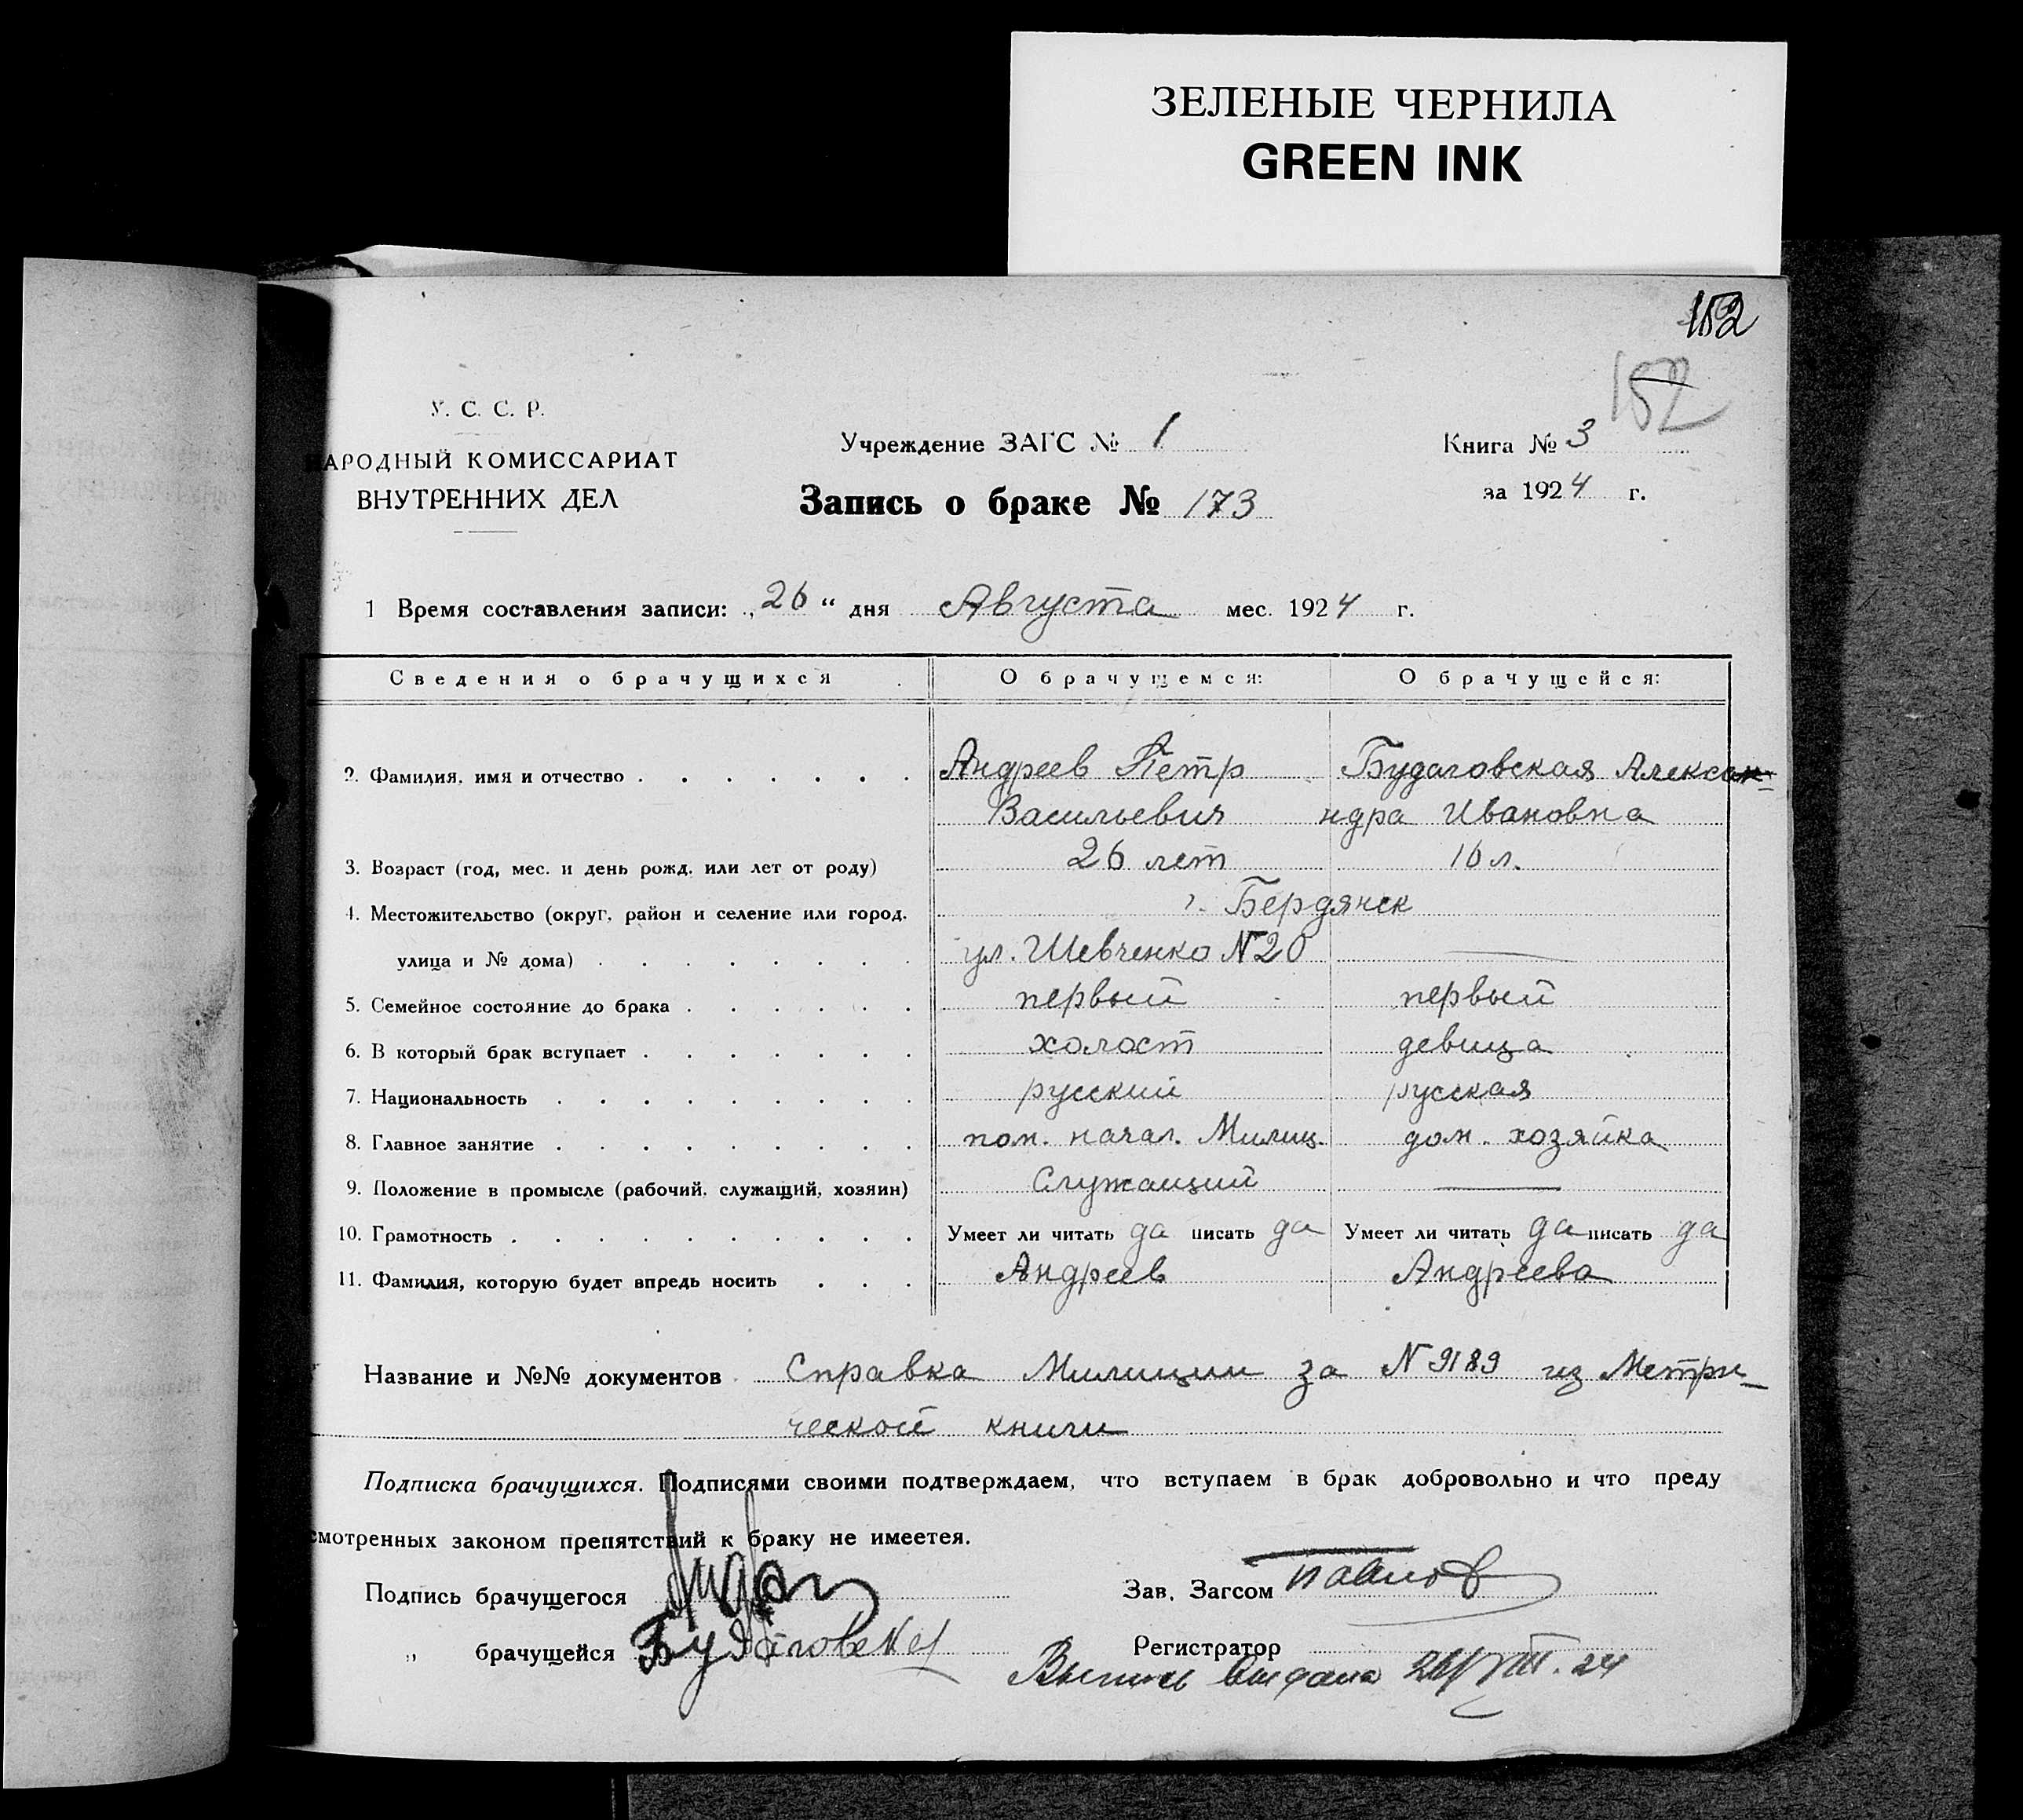 ЗЕЛЕНЫЕ ЧЕРНИЛА
GREEN INK
152
152
У. С. С. Р.
НАРОДНЫЙ КОМИССАРИАТ
ВНУТРЕННИХ ДЕЛ
Учреждение ЗАГС № 1
Запись о браке № 173
Книга № 3
за 1924 г.
1 Время составления записи: „26“ дня Августа мес. 1924 г.
Сведения о брачущихся О брачущемся: О брачущейся:
2. Фамилия, имя и отчество Андреев Петр Будаговская Алексан-
Васильевич ндра Ивановна
3. Возраст (год, мес. и день рожд. или лет от роду) 26 лет 16 л.
4. Местожительство (округ, район и селение или город, г. Бердянск
улица и № дома) ул. Шевченко N 20 —
5. Семейное состояние до брака первый первый
6. В который брак вступает холост девица
7. Национальность русский русская
8. Главное занятие пом. начал. Милиц. дом. хозяйка
9. Положение в промысле (рабочий, служащий, хозяин) Служащий —
10. Грамотность Умеет ли читать да писать да Умеет ли читать да писать да
11. Фамилия, которую будет впредь носить Андреев Андреева
Название и №№ документов Справка Милиции за N 9189 из Метри-
ческой книги
Подписка брачущихся. Подписями своими подтверждаем, что вступаем в брак добровольно и что преду
смотренных законом препятствий к браку не имеетея.
Подпись брачущегося
Зав. Загсом Павлов
„ брачущейся Будаговская
Регистратор
Выпись выдана 26/VIII. 24